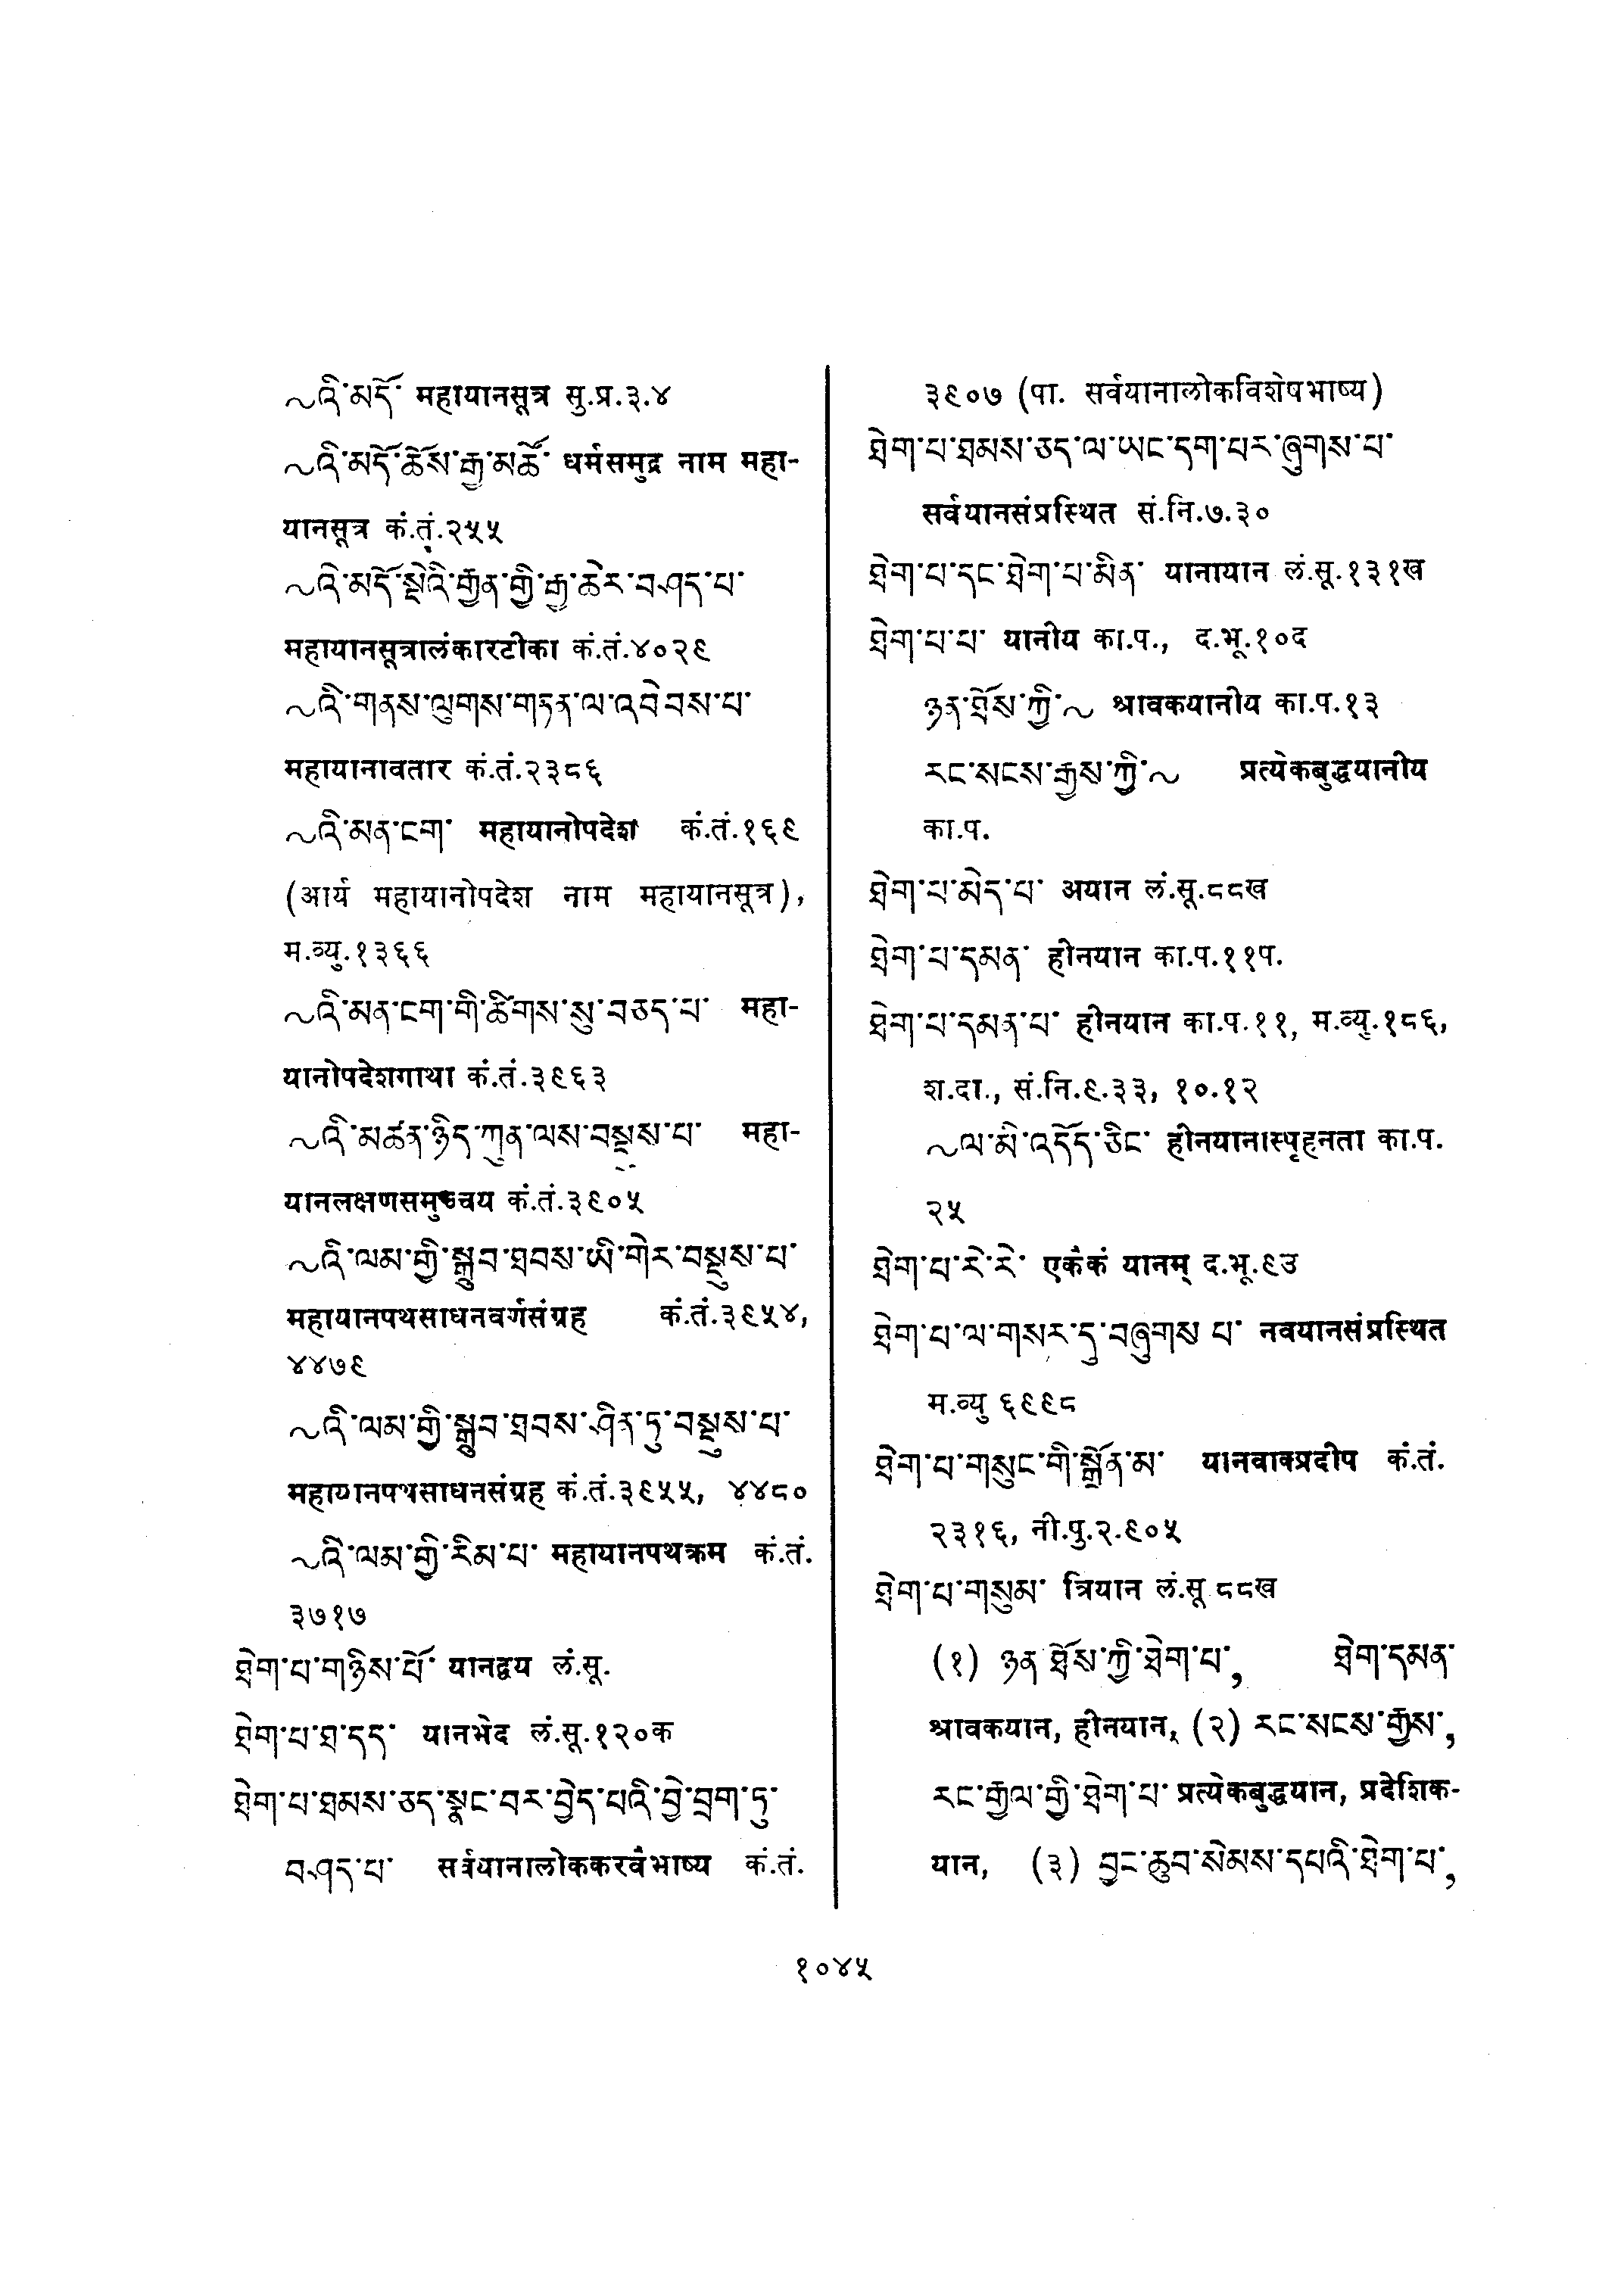 ~འི་མདོ་ महायानसूत्र सु.प्र.३.४
~འི་མདོ་ཆོས་རྒྱ་མཚོ་ धर्मसमुद्र नाम महा-
यानसूत्र कं.तं.२५५
~འི་མདོ་སྡེའི་རྒྱན་གྱི་རྒྱ་ཆེར་བཤད་པ་
महायानसूत्रालंकारटीका कं.तं.४०२९
~འི་གནས་ལུགས་གཏན་ལ་འབེབས་པ་
महायानावतार कं.तं.२३८६
~འི་མན་ངག་ महायानोपदेश कं.तं.१६९
(आर्य महायानोपदेश नाम महायानसूत्र),
म.व्यु.१३६६
~འི་མན་ངག་གི་ཚིགས་སུ་བཅད་པ་ महा-
यानोपदेशगाथा कं.तं.३९६३
~འི་མཚན་ཉིད་ཀུན་ལས་བསྡུས་པ་ महा-
यानलक्षणसमुच्चय कं.तं.३९०५
~འི་ལམ་གྱི་སྒྲུབ་ཐབས་ཡི་གེར་བསྡུས་པ་
महायानपथसाधनवर्गसंग्रह कं.तं.३९५४,
४४७९
~འི་ལམ་གྱི་སྒྲུབ་ཐབས་ཤིན་ཏུ་བསྡུས་པ་
महायानपथसाधनसंग्रह कं.तं.३९५५, ४४८०
~འི་ལམ་གྱི་རིམ་པ་ महायानपथक्रम कं.तं.
३७१७
ཐེག་པ་གཉིས་པོ་ यानद्वय लं.सू.
ཐེག་པ་ཐ་དད་ यानभेद लं.सू.१२०क
ཐེག་པ་ཐམས་ཅད་སྣང་བར་བྱེད་པའི་བྱེ་བྲག་ཏུ་
བཤད་པ་ सर्वयानालोककरवैभाष्य कं.तं.
३९०७ (पा. सर्वयानालोकविशेषभाष्य)
ཐེག་པ་ཐམས་ཅད་ལ་ཡང་དག་པར་ཞུགས་པ་
सर्वयानसंप्रस्थित सं.नि.७.३०
ཐེག་པ་དང་ཐེག་པ་མིན་ यानायान लं.सू.१३१ख
ཐེག་པ་པ་ यानीय का.प., द.भू.१०द
ཉན་ཐོས་ཀྱི་~ श्रावकयानीय का.प.१३
རང་སངས་རྒྱས་ཀྱི་~ प्रत्येकबुद्धयानीय
का.प.
ཐེག་པ་མེད་པ་ अयान लं.सू.८८ख
ཐེག་པ་དམན་ हीनयान का.प.११प.
ཐེག་པ་དམན་པ་ हीनयान का.प.११, म.व्यु.१८६,
श.दा., सं.नि.९.३३, १०.१२
~ལ་མི་འདོད་ཅིང་ हीनयानास्पृहनता का.प.
२५
ཐེག་པ་རེ་རེ་ एकैकं यानम् द.भू.९उ
ཐེག་པ་ལ་གསར་དུ་བཞུགས པ་ नवयानसंप्रस्थित
म.व्यु ६९९८
ཐེག་པ་གསུང་གི་སྒྲོན་མ་ यानवाक्प्रदीप कं.तं.
२३१६, नी.पु.२.९०५
ཐེག་པ་གསུམ་ त्रियान लं.सू ८८ख
(१) ཉན ཐོས་ཀྱི་ཐེག་པ་, ཐེག་དམན་
श्रावकयान, हीनयान, (२) རང་སངས་རྒྱས་,
རང་རྒྱལ་གྱི་ཐེག་པ་ प्रत्येकबुद्धयान, प्रदेशिक-
यान, (३) བྱང་ཆུབ་སེམས་དཔའི་ཐེག་པ་,
१०४५